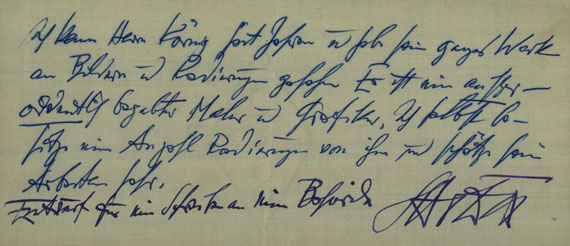 Ich kenne Herrn König seit Jahren u habe sein ganzes Werk
an Bildern u Radierungen gesehen. Er ist ein außer-
ordentlich begabter Maler u Grafiker, Ich selbst be-
sitze eine Anzahl Radierungen von ihm und schätze seine
Arbeiten sehr.
Entwurf für ein Schreiben an eine Behörde